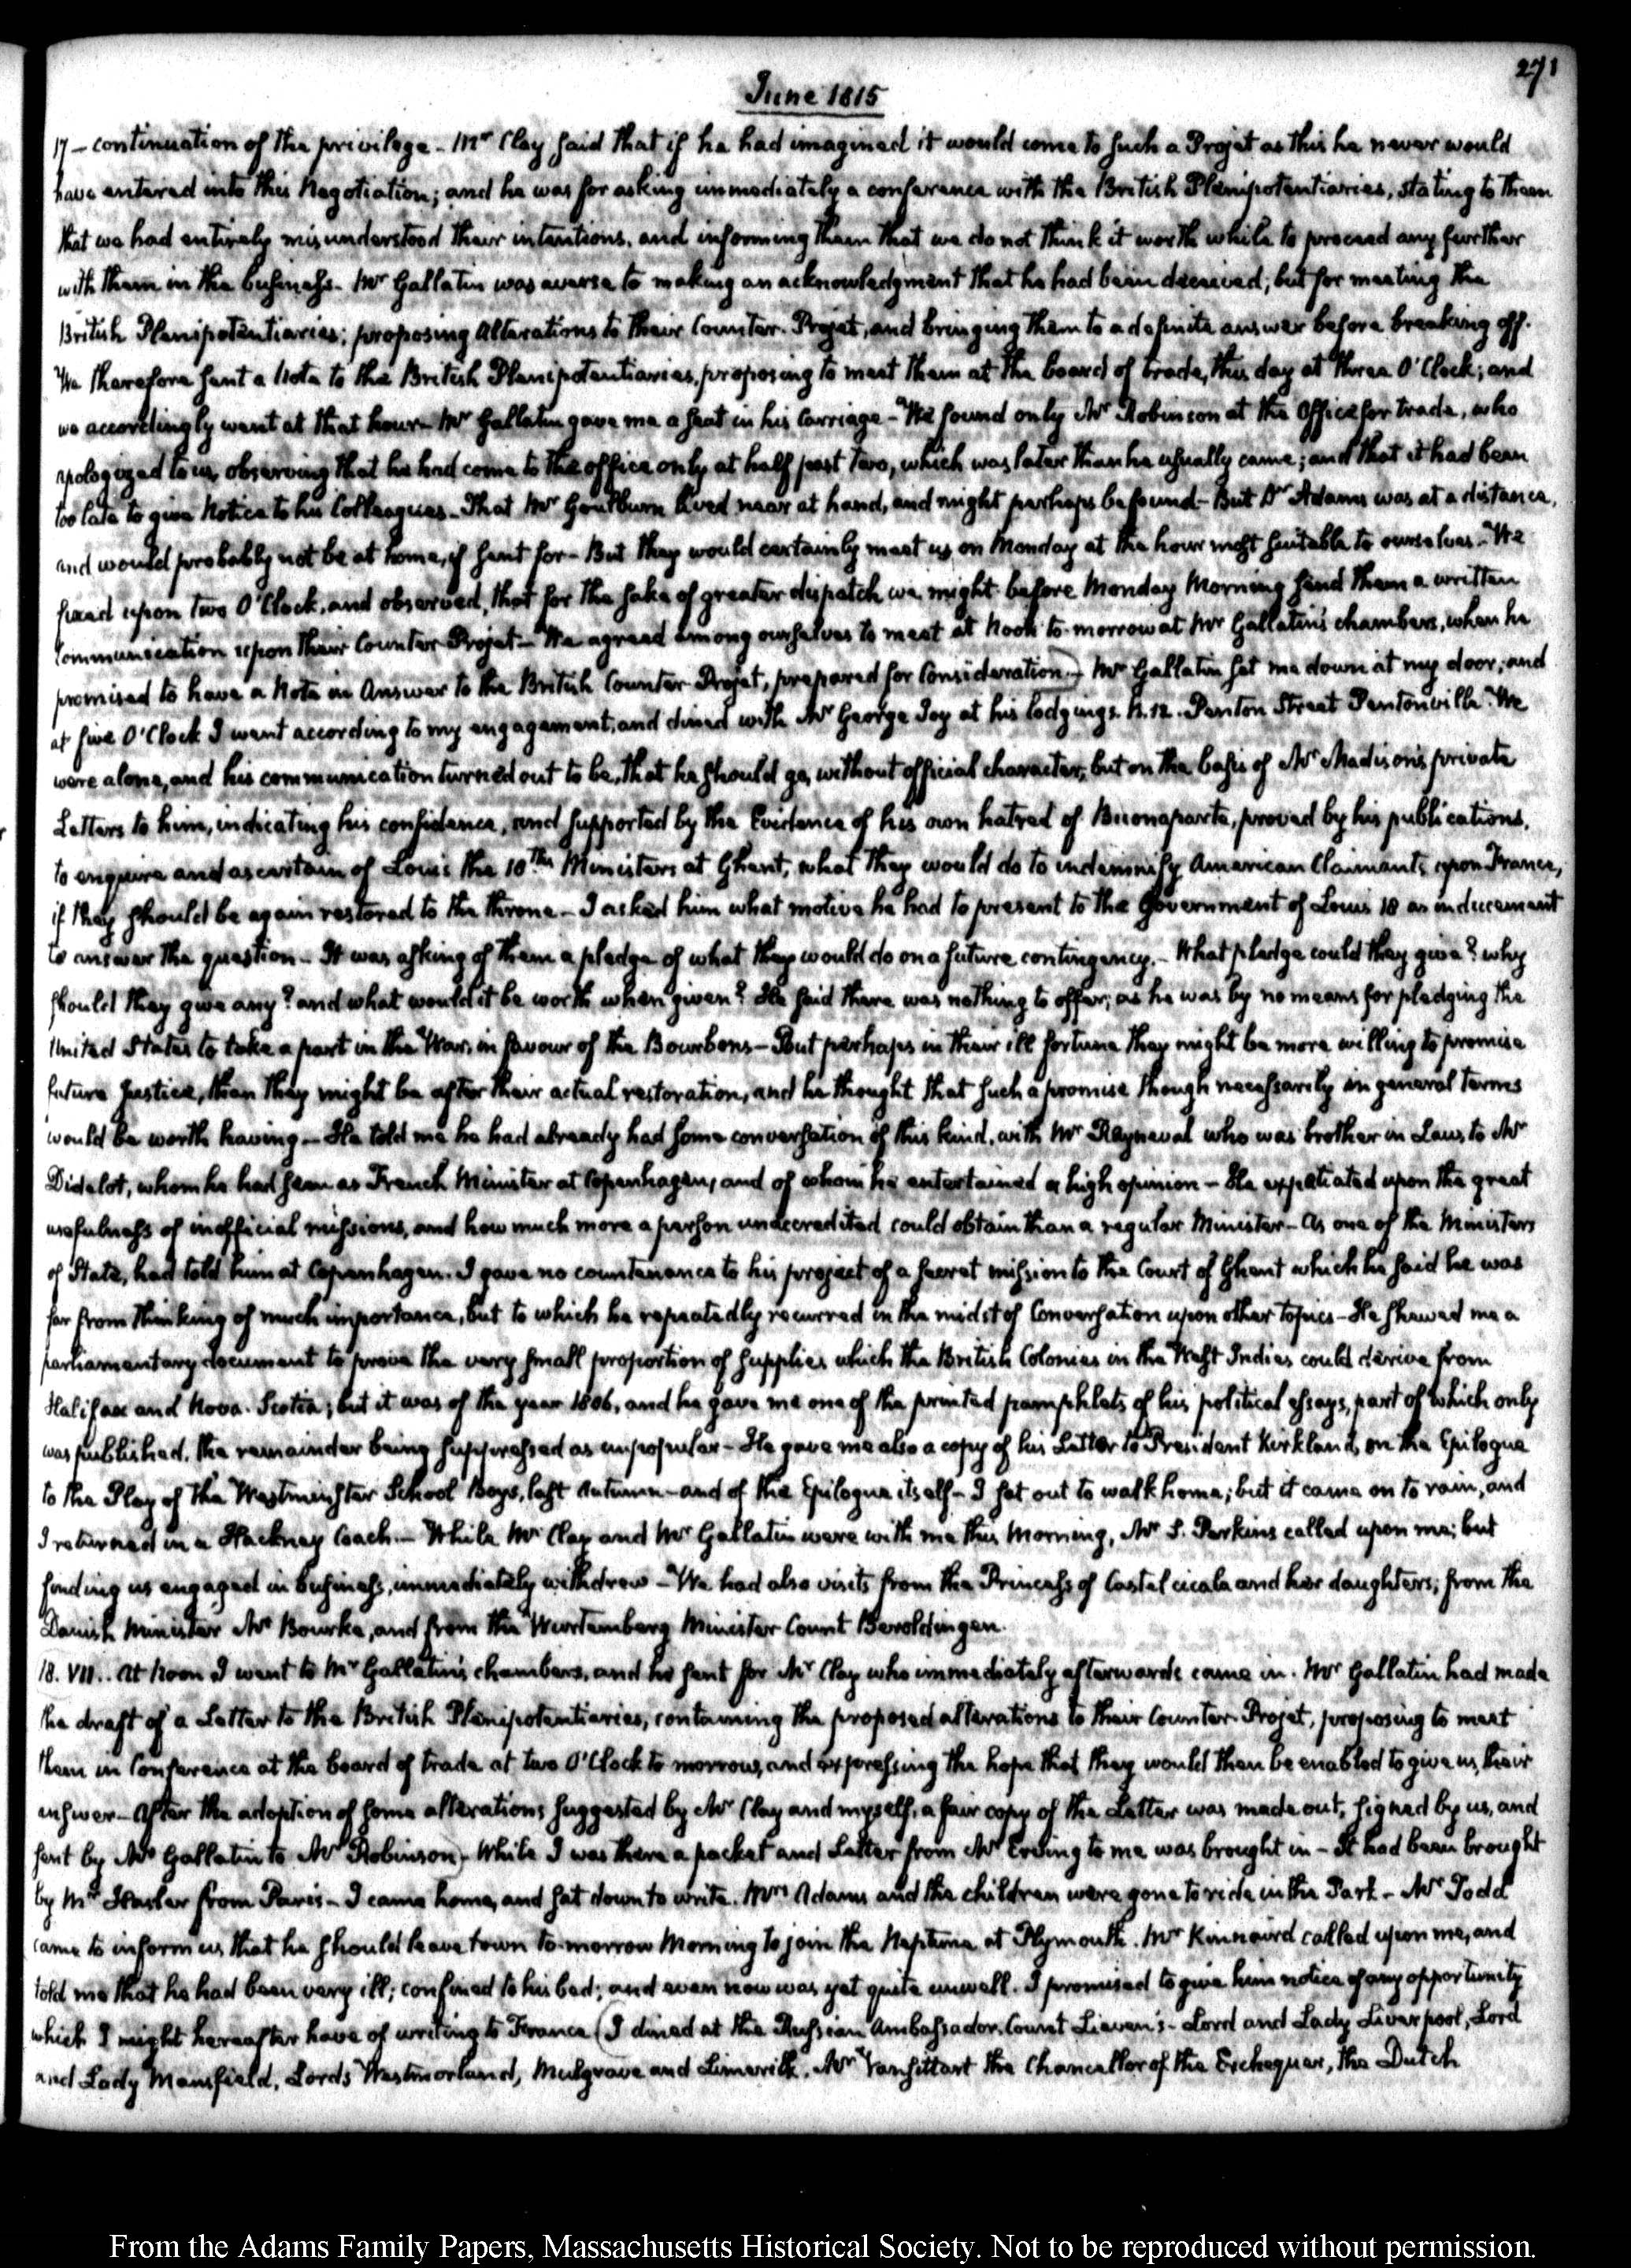 271
June 1815
17 — continuation of the privilege – Mr Clay said that if he had imagined it would come to such a Projet as this he never would
have entered into this Negotiation; and he was for asking immediately a conference with the British Plenipotentiaries, stating to them
that we had entirely misunderstood their intentions, and informing them that we do not think it worth while to proceed any further
with them in the business – Mr Gallatin was averse to making an acknowledgment that he had been deceived; but for meeting the
British Plenipotentiaries; proposing Alterations to their Counter-Projet, and bringing them to a definite answer before breaking off.
We therefore sent a Note to the British Plenipotentiaries, proposing to meet them at the board of trade, this day at three O'Clock; and
we accordingly went at that hour – Mr Gallatin gave me a seat in his Carriage – We found only Mr Robinson at the Office for trade, who
apologized to us, observing that he had come to the office only at half past two, which was later than he usually came; and that it had been
too late to give Notice to his Colleagues – That Mr Goulburn lived near at hand, and might perhaps be found – But Dr Adams was at a distance,
and would probably not be at home, if sent for – But they would certainly meet us on Monday at the hour most suitable to ourselves – We
fixed upon two O'Clock, and observed, that for the sake of greater dispatch we might before Monday Morning send them a written
communication upon their Counter-Projet – We agreed among ourselves to meet at Noon to-morrow at Mr Gallatin's chambers, when he
promised to have a Note in Answer to the British Counter Projet, prepared for Consideration) – Mr Gallatin set me down at my door; and
at five O'Clock I went according to my engagement, and dined with Mr George Joy at his lodgings. N. 12. Penton Street Pentonville. We
were alone, and his communication turned out to be, that he should go, without official character, but on the basis of Mr Madison's private
Letters to him, indicating his confidence, and supported by the Evidence of his own hatred of Buonaparte, proved by his publications,
to enquire and ascertain of Louis the 18th Ministers at Ghent, what they would do to indemnify American Claimants upon France,
if they should be again restored to the throne – I asked him what motive he had to present to the Government of Louis 18 as inducement
to answer the question – It was asking of them a pledge of what they would do on a future contingency. – What pledge could they give? why
should they give any? and what would it be worth when given? He said there was nothing to offer; as he was by no means for pledging the
United States to take a part in the War, in favour of the Bourbons – But perhaps in their ill fortune they might be more willing to promise
future justice, than they might be after their actual restoration, and he thought that such a promise though necessarily in general terms
would be worth having – He told me he had already had some conversation of this kind, with Mr Rayneval who was brother in Law, to Mr
Didelot, whom he had seen as French Minister at Copenhagen, and of whom he entertained a high opinion – He expatiated upon the great
usefulness of inofficial missions, and how much more a person unaccredited could obtain than a regular Minister – As one of the Ministers
of State, had told him at Copenhagen. I gave no countenance to his project of a secret mission to the Court of Ghent which he said he was
far from thinking of much importance, but to which he repeatedly recurred in the midst of Conversation upon other topics – He shewed me a
parliamentary document to prove the very small proportion of supplies which the British Colonies in the West Indies could derive from
Halifax and Nova-Scotia; but it was of the year 1806, and he gave me one of the printed pamphlets of his political essays, part of which only
was published, the remainder being suppressed as unpopular – He gave me also a copy of his Letter to President Kirkland, on the Epilogue
to the Play of the Westminster School Boys, last Autumn – and of the Epilogue itself – I set out to walk home; but it came on to rain, and
I returned in a Hackney Coach – While Mr Clay and Mr Gallatin were with me this Morning, Mr S. Perkins called upon me; but
finding us engaged in business, immediately withdrew – We had also visits from the Princess of Castelcicala and her daughters; from the
Danish Minister Mr Bourke, and from the Wurtemberg Minister Count Beroldingen.
18. VII. At Noon I went to Mr Gallatin's chambers, and he sent for Mr Clay who immediately afterwards came in. Mr Gallatin had made
the draft of a Letter to the British Plenipotentiaries, containing the proposed alterations to their Counter-Projet, proposing to meet
them in Conference at the board of trade at two O'Clock to morrow, and expressing the hope that they would then be enabled to give us, their
answer – After the adoption of some alterations suggested by Mr Clay and myself, a fair copy of the Letter was made out, signed by us, and
sent by Mr Gallatin to Mr Robinson) – While I was there a packet and Letter from Mr Erving to me was brought in – It had been brought
by Mr Hasler from Paris – I came home, and sat down to write. Mrs Adams and the children were gone to ride in the Park – Mr Todd
came to inform us that he should leave town to-morrow Morning to join the Neptune at Plymouth. Mr Kinnaird called upon me, and
told me that he had been very ill; confined to his bed; and even now was yet quite unwell. I promised to give him notice of any opportunity
which I might hereafter have of writing to France (I dined at the Russian Ambassador, Count Lieven's – Lord and Lady Liverpool, Lord
and Lady Mansfield, Lords Westmorland, Mulgrave and Limerick. Mr Vansittart the Chancellor of the Exchequer, the Dutch
From the Adams Family Papers, Massachusetts Historical Society. Not to be reproduced without permission.